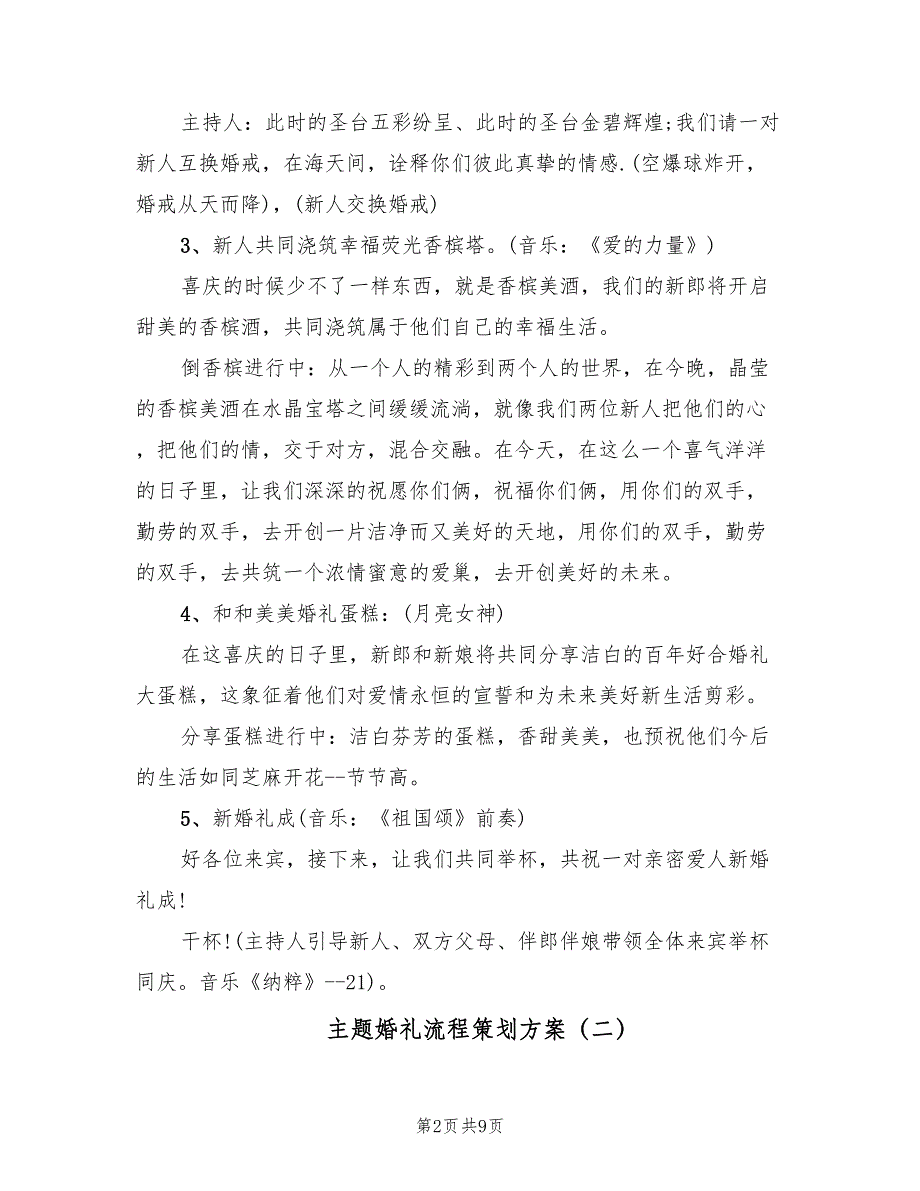 主持人：此时的圣台五彩纷呈、此时的圣台金碧辉煌;我们请一对
新人互换婚戒，在海天间，诠释你们彼此真挚的情感.(空爆球炸开，
婚戒从天而降)，(新人交换婚戒)
3、新人共同浇筑幸福荧光香槟塔。(音乐：《爱的力量》)
喜庆的时候少不了一样东西，就是香槟美酒，我们的新郎将开启
甜美的香槟酒，共同浇筑属于他们自己的幸福生活。
倒香槟进行中：从一个人的精彩到两个人的世界，在今晚，晶莹
的香槟美酒在水晶宝塔之间缓缓流淌，就像我们两位新人把他们的心
，把他们的情，交于对方，混合交融。在今天，在这么一个喜气洋洋
的日子里，让我们深深的祝愿你们俩，祝福你们俩，用你们的双手，
勤劳的双手，去开创一片洁净而又美好的天地，用你们的双手，勤劳
的双手，去共筑一个浓情蜜意的爱巢，去开创美好的未来。
4、和和美美婚礼蛋糕：(月亮女神)
在这喜庆的日子里，新郎和新娘将共同分享洁白的百年好合婚礼
大蛋糕，这象征着他们对爱情永恒的宣誓和为未来美好新生活剪彩。
分享蛋糕进行中：洁白芬芳的蛋糕，香甜美美，也预祝他们今后
的生活如同芝麻开花--节节高。
5、新婚礼成(音乐：《祖国颂》前奏)
好各位来宾，接下来，让我们共同举杯，共祝一对亲密爱人新婚
礼成!
干杯!(主持人引导新人、双方父母、伴郎伴娘带领全体来宾举杯
同庆。音乐《纳粹》--21)。
主题婚礼流程策划方案（二）
第2页 共9页